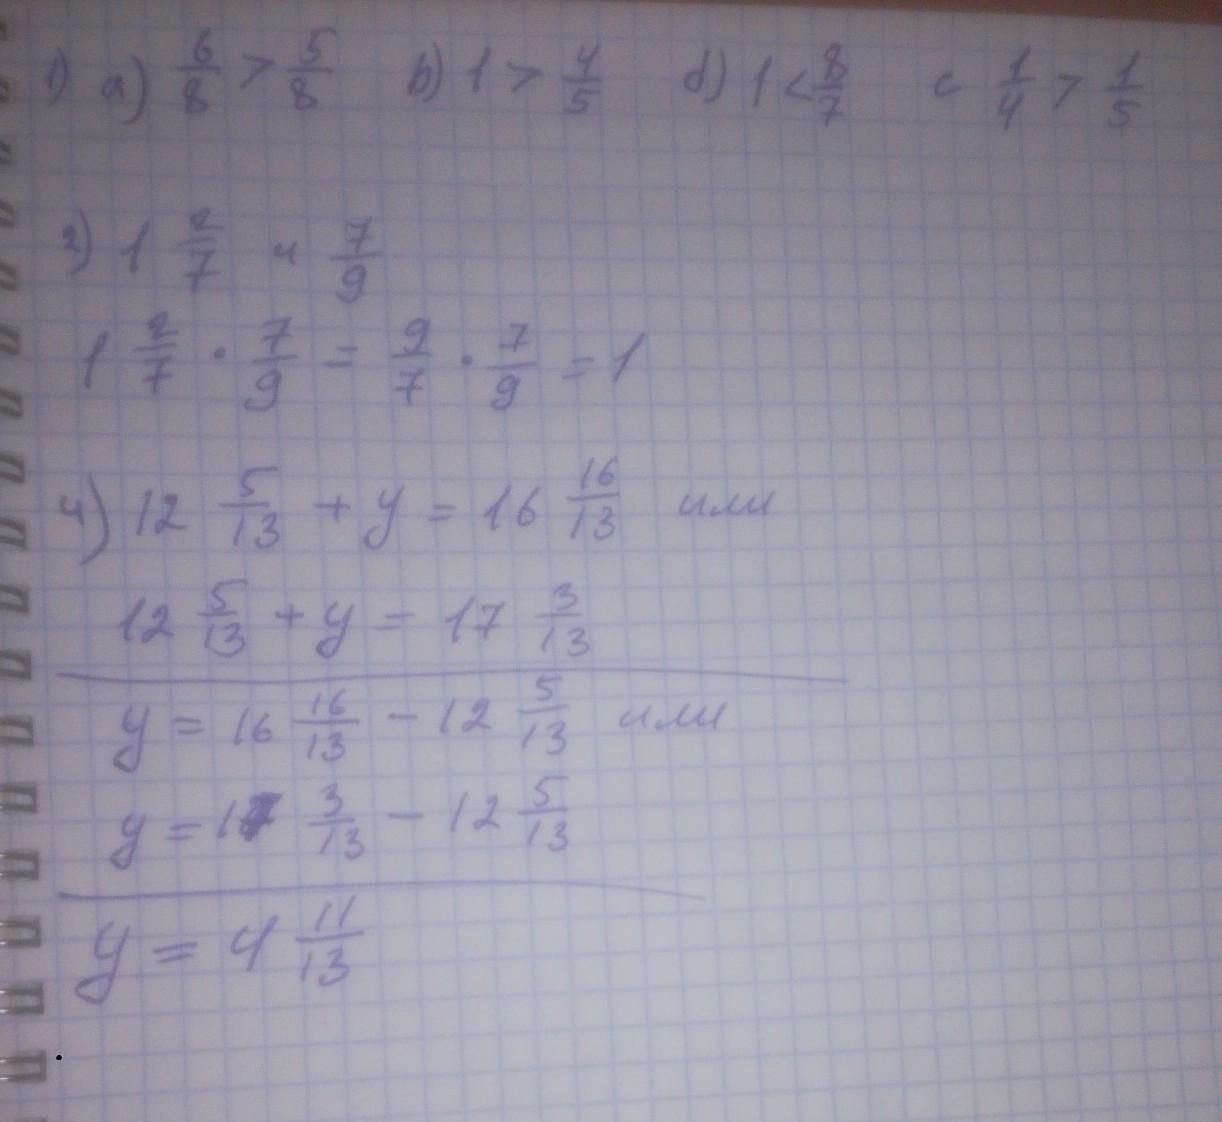 1) а) 6/8 > 5/8 b) 1 > 4/5 d) 1 < 8/7 c 1/4 > 1/5
2) 1 2/7 и 7/9
1 2/7 · 7/9 = 9/7 · 7/9 = 1
4) 12 5/13 + y = 16 16/13 или
12 5/13 + y = 17 3/13
y = 16 16/13 - 12 5/13 или
y = 17 3/13 - 12 5/13
y = 4 11/13